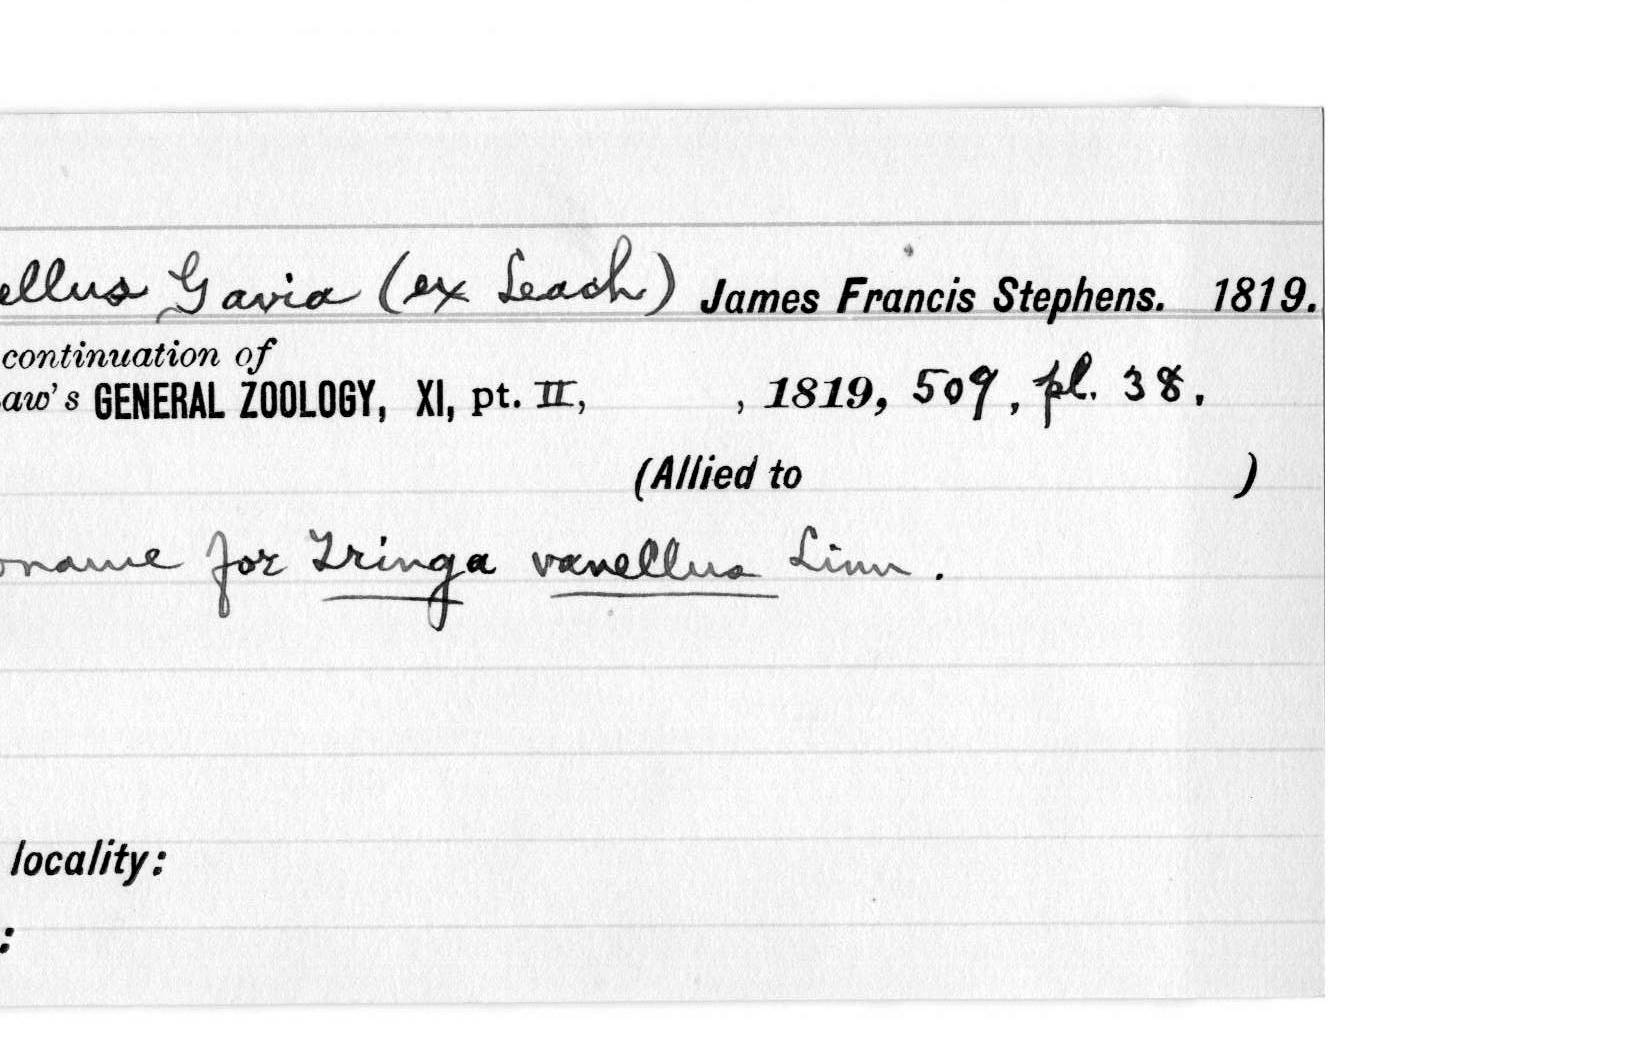 ellus Gavia (ex Leach) James Francis Stephens. 1819.
continuation of
aw's GENERAL ZOOLOGY, XI, pt. II, , 1819, 509, pl. 38,
(Allied to )
oname for Tringa vanellus Linn.
locality:
: